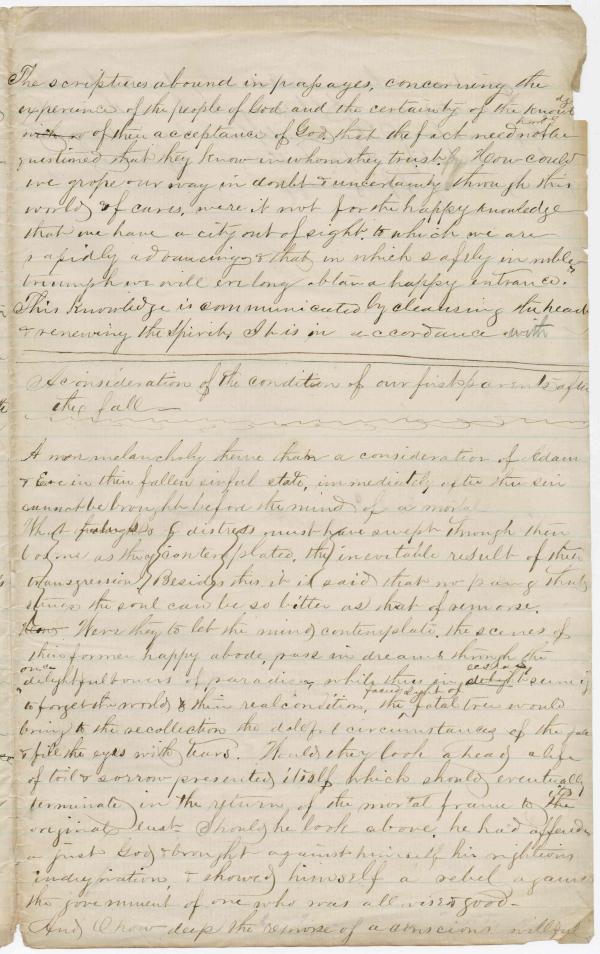 The scriptures abound in passages, concerning the
experience of the people of God and the certainty of the knowledge
of their acceptance of God, that the fact need not be
questioned that they know in whom they trust. How could
we grope our way in doubt & uncertainty through this
world of cares, were it not for the happy knowledge
that we have a city out of sight, to which we are
rapidly advancing & that in which safely in noble
triumph we will ere long obtain a happy entrance.
This knowledge is communicated by cleansing the heart
& renewing the Spirit, It is in accordance with
A consideration of the condition of our first parents after
the fall
A more melancholy theme than a consideration of Adam
& Eve in their fallen sinful state, immediately after their sin
cannot be brought before the mind of a mortal
What of distress must have swept through their
bosoms as they contemplated, the inevitable result of their
transgression, Besides this, it is said that no pang that
the soul can be so bitter as that of remorse.
Were they to let the mind contemplate, the scenes of
their former happy abode, pass in dreams through the
once delightful bowers of paradise, while thus in ecstacy
to forget the world & their real condition, the fatal tree would
bring to the recollection the circumstances of the
& fill the eyes with tears. Would they look ahead, a life
of toil & sorrow presented itself which should eventually
terminate in the return, of the mortal frame to its
original dust. Should he look above, he had offended
a just God & brought against himself his righteous
indignation, & showed himself a rebel against
the government of one who was all wise & good.
And O how deep the remorse of a conscious